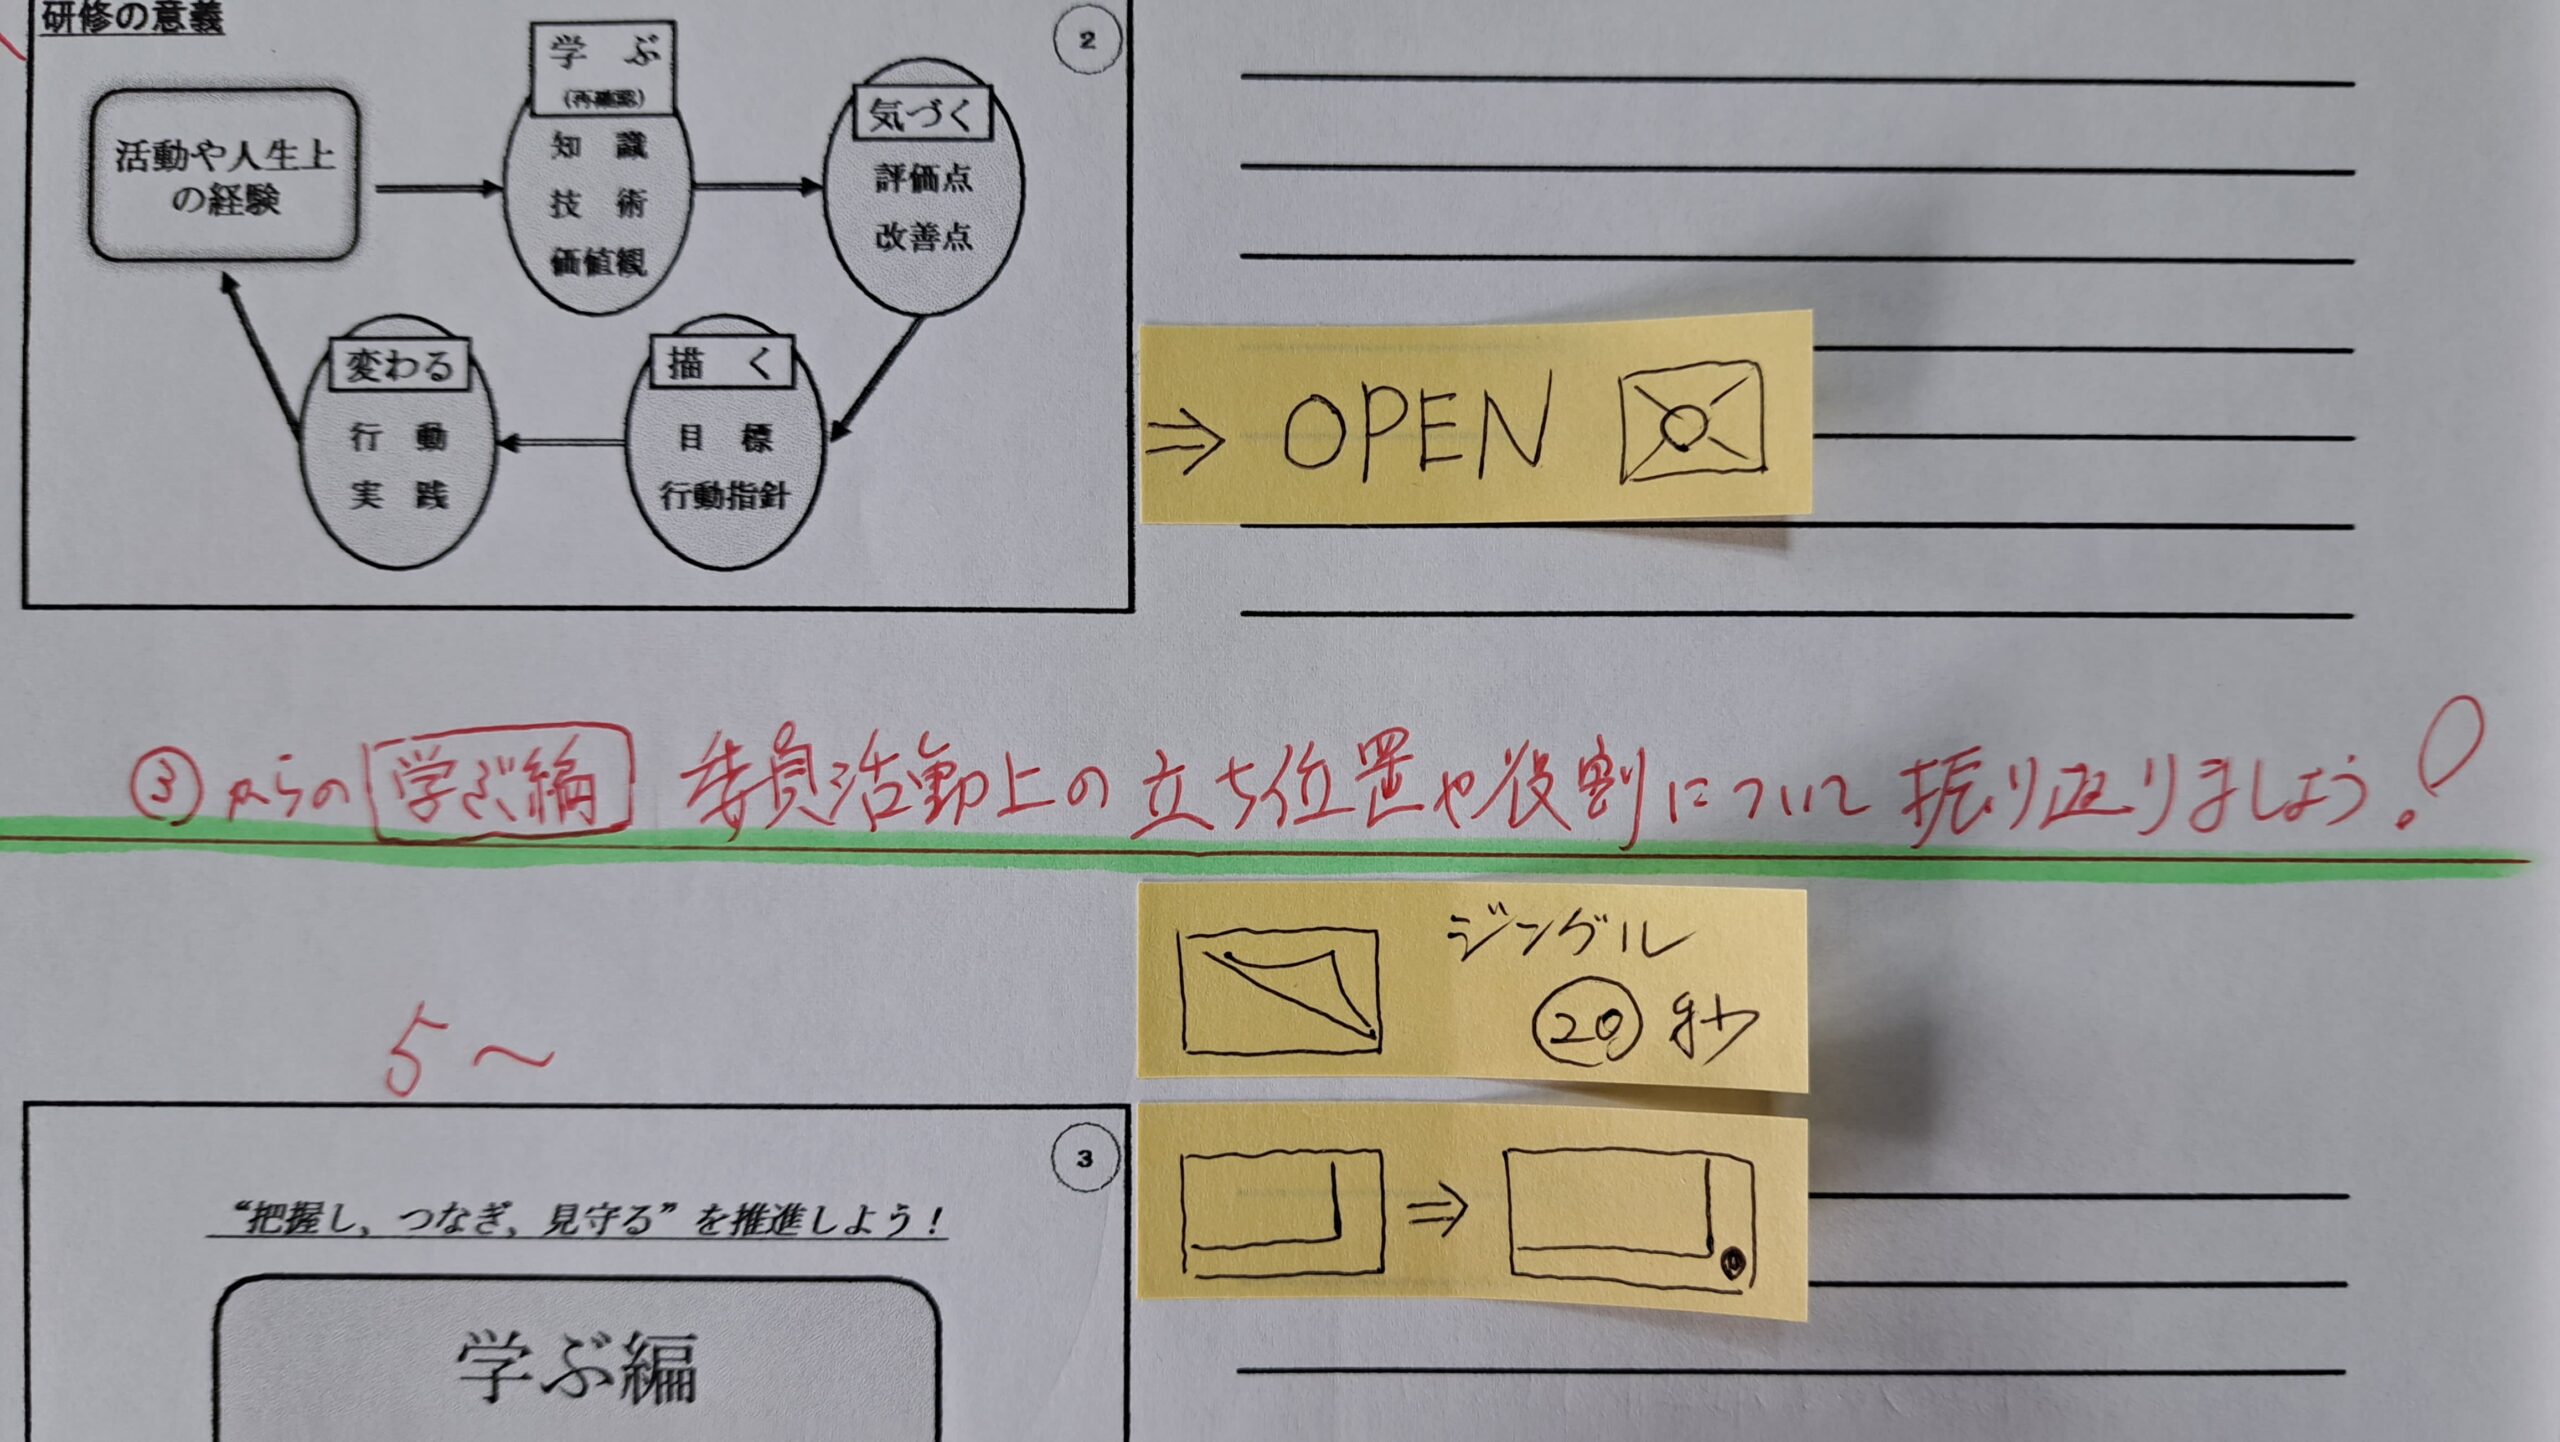 研修の意義
2
学　ぶ
(再確認)
知　識
技　術
価値観
気づく
評価点
改善点
活動や人生上
の経験
変わる
行　動
実　践
描　く
目　標
行動指針
⇒ OPEN
③からの 学ぶ編 委員活動上の立ち位置や役割について振り返りましょう!
ジングル
⑳秒
5〜
⇒
3
“把握し，つなぎ，見守る”を推進しよう！
学ぶ編